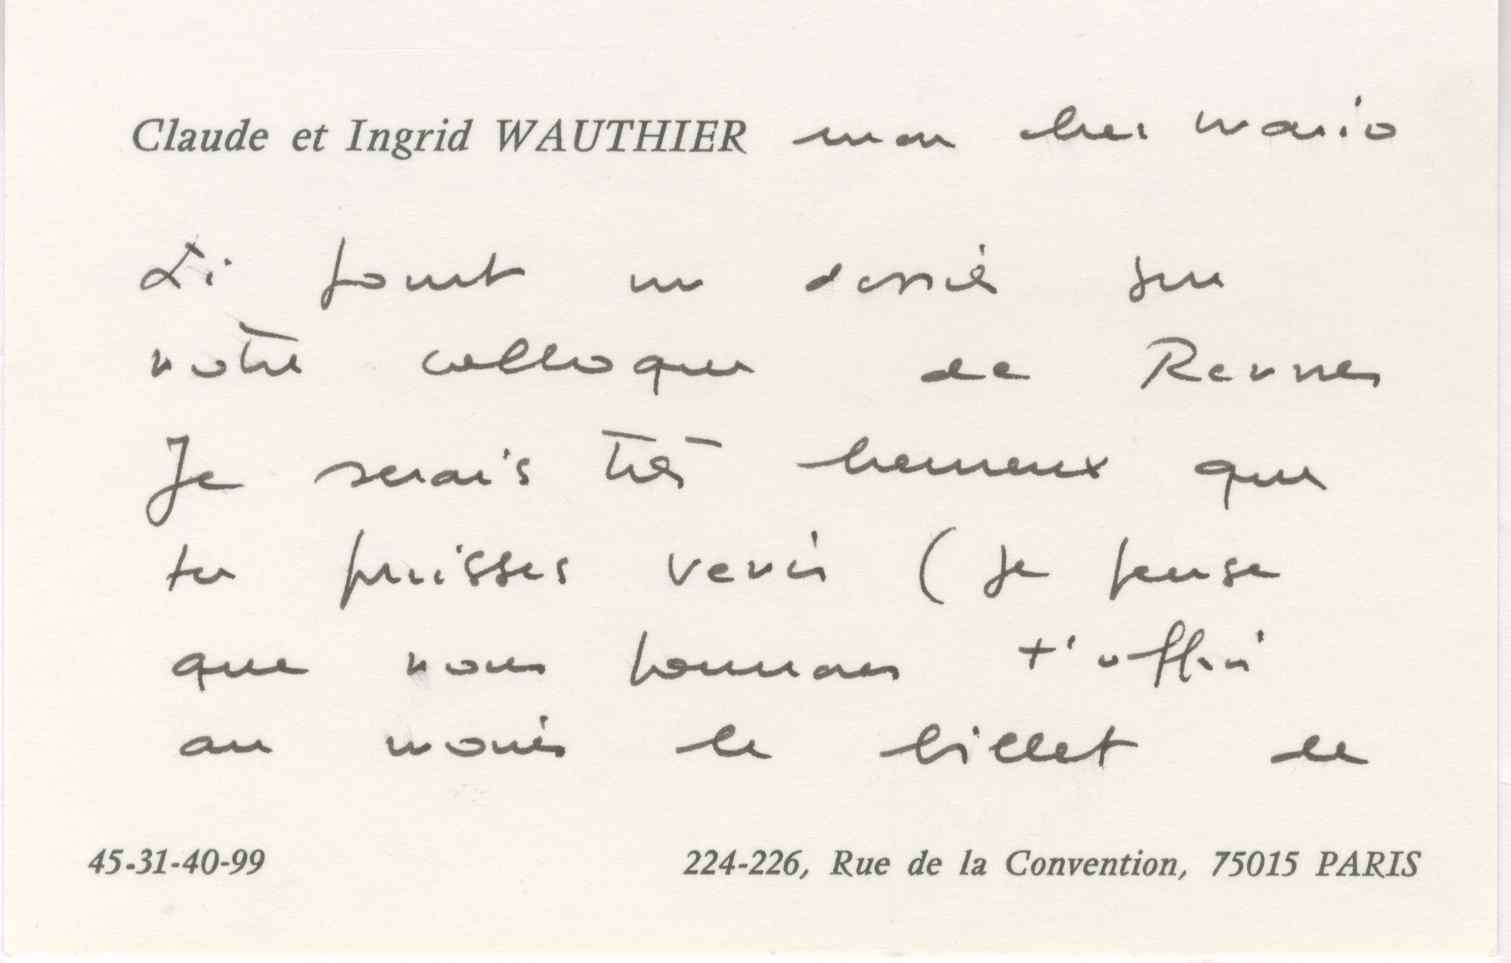 Claude et Ingrid WAUTHIER mon cher Mario
Ci joint un dossier sur
notre colloque de Rennes
Je serais très heureux que
tu puisses venir (je pense
que nous pourrons t'offrir
au moins le billet de
45-31-40-99 224-226, Rue de la Convention, 75015 PARIS